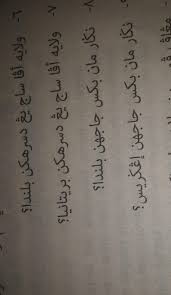 ٦- ولايه أڤا ساج يڠ دسرهكن بلندا؟
٧- ولايه أڤا ساج يڠ دسرهكن بريتانيا؟
٨- نگار مان بكس جاجهن بلندا؟
٩- نگار مان بكس جاجهن إڠگريس؟